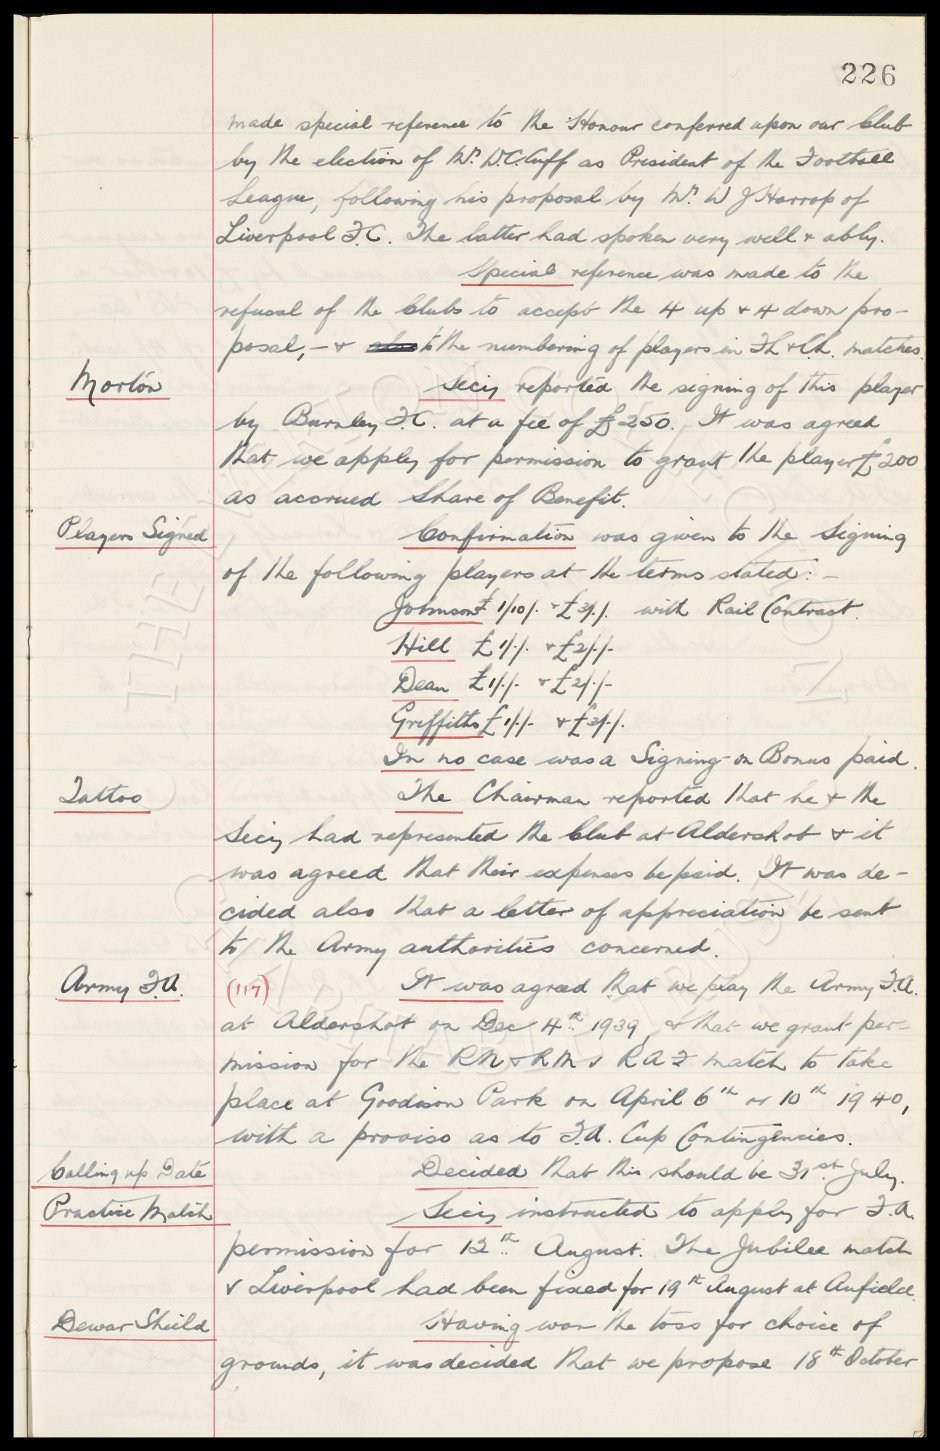 226
made special reference to the Honour conferred upon our Club
by the election of Mr. W.C. Cuff as President of the Football
League, following his proposal by Mr. W J Harrop of
Liverpool F.C. The latter had spoken very well & ably.
Special reference was made to the
refusal of the Clubs to accept the 4 up & 4 down pro-
posal, - & to the numbering of players in F.L. & Ch. matches.
Morton Secy reported the signing of this player
by Burnley F.C. at a fee of £250. It was agreed
that we apply for permission to grant the player £200
as accrued Share of Benefit.
Players Signed Confirmation was given to the Signing
of the following players at the terms stated:-
Johnson £1/10/. & £3/./. with Rail Contract.
Hill £1/-/- & £2/-/-
Dean £1/-/- & £2/-/-
Griffiths £1/-/- & £2/-/.
In no case was a Signing-on Bonus paid.
Tattoo The Chairman reported that he & the
Secy had represented the Club at Aldershot & it
was agreed that their expenses be paid. It was de-
cided also that a letter of appreciation be sent
to the Army authorities concerned.
Army F.A. (117) It was agreed that we play the Army F.A.
at Aldershot on Dec 4th 1939, & that we grant per-
mission for the RN & RM v RAF match to take
place at Goodison Park on April 6th or 10th 1940,
with a proviso as to F.A. Cup Contingencies.
Calling up Date Decided that this should be 31st July.
Practice Match Secy instructed to apply for F.A.
permission for 12th August. The Jubilee match
v Liverpool had been fixed for 19th August at Anfield.
Dewar Sheild Having won the toss for choice of
grounds, it was decided that we propose 18th October